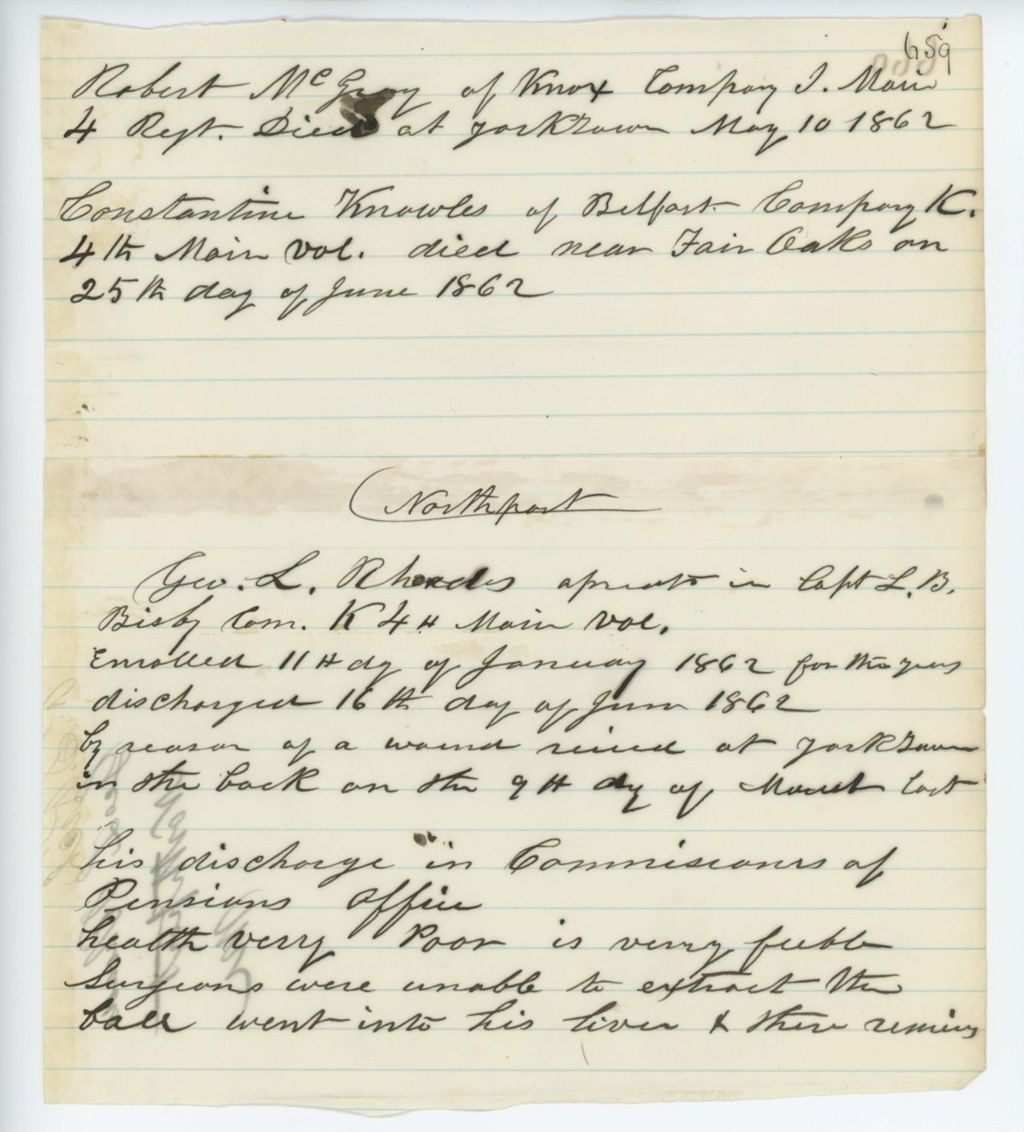 659
Robert McGray of Knox Company I. Main
4 Regt. Died at yorktown May 10 1862
Constantine Knowles of Belfast Company K.
4th Main vol. died near Fair Oaks on
25th day of June 1862
Northport
Geo. L. Rhoades in Capt L. B.
Bisby Com. K 4th Main vol.
Enrolled 11th dy of January 1862 for the years
discharged 16th day of June 1862
by reason of a wound at yorktown
in the back on the 9th dy of last
his discharge in Commisioners of
Pensions office
health verry Poor is verry feeble
Surgeons were unable to extract the
ball went into his liver & there remains